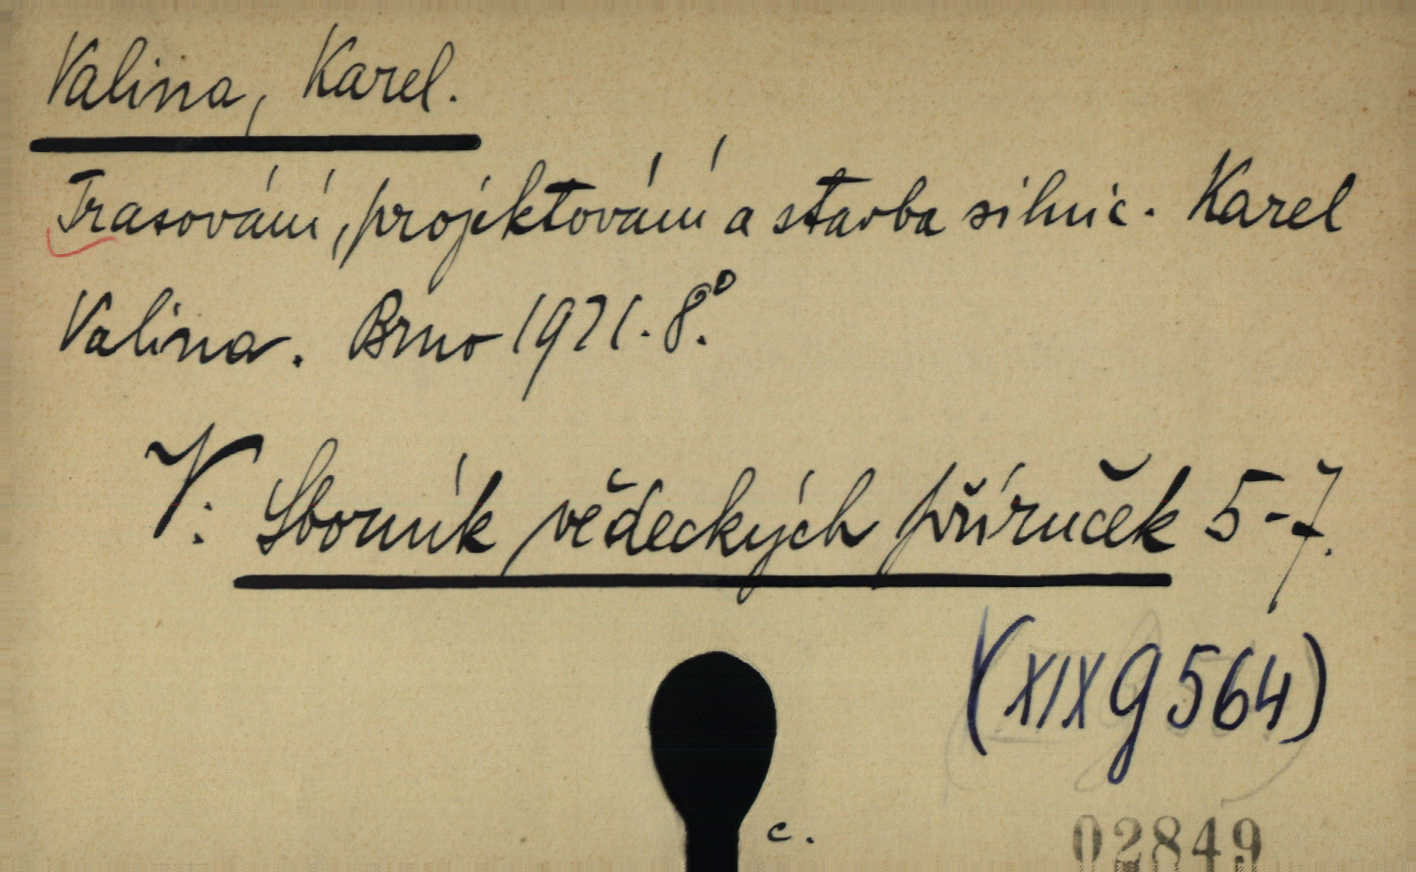 Valina, Karel.
Trasování, projektování a stavba silnic. Karel
Valina. Brno 1921. 8°.
V: Sborník vědeckých příruček 5-7.
(XIX g 564)
c.
02849